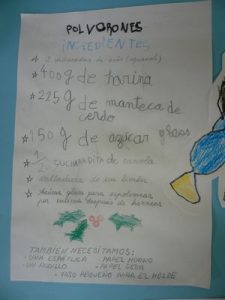 POLVORONES
INGREDIENTES
400g de harina
225g de manteca de
cerdo
150g de azúcar glass
1/2 cucharadita de canela
Ralladura de un limón
Azúcar glass para espolvorear
por encima después de hornear
TAMBIEN NECESITAMOS:
-UNA ESPATULA -PAPEL HORNO
-UN RODILLO -PAPEL SEDA
-VASO PEQUEÑO PARA EL MOLDE